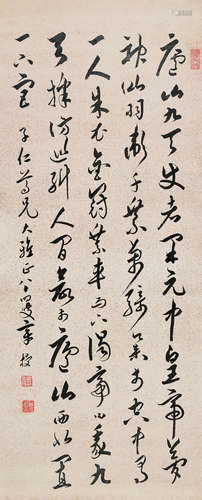 廬山九天使者開元中皇帝夢
神仙羽衛千乘萬騎集於空中有
一人朱衣金冠乘車而下謁帝曰我九
天採訪巡糾人間欲於廬山西北置
一下宮 子仁尊兄大雅正 章梫